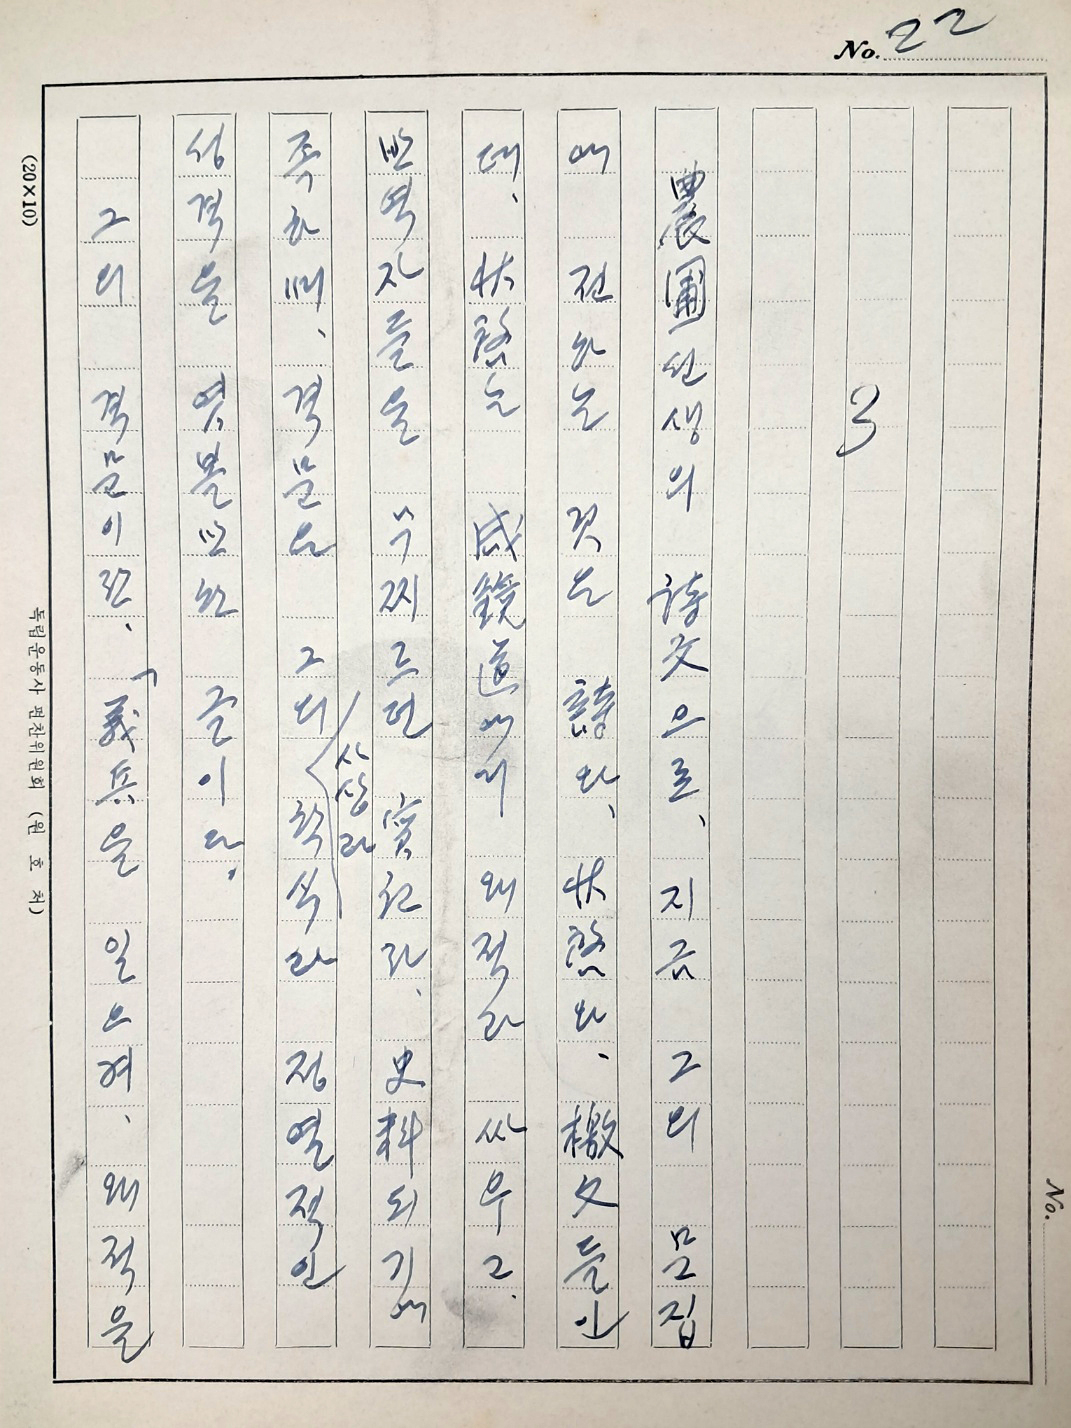 No. 22
3
農圃선생의 詩文으로, 지금 그의 문집
에 전하는 것은 詩와, 狀啓와, 檄文들인
데, 狀啓는 咸鏡道에서 왜적과 싸우고,
반역자들을 무찌르던 實記라, 史料되기에
족하며, 격문은 그의 사상과 학식과 정열적인
성격을 엿볼만한 글이다.
그의 격문이란, 「義兵을 일으켜, 왜적을
(20×10)
독립운동사 편찬위원회 (원호처)
No.